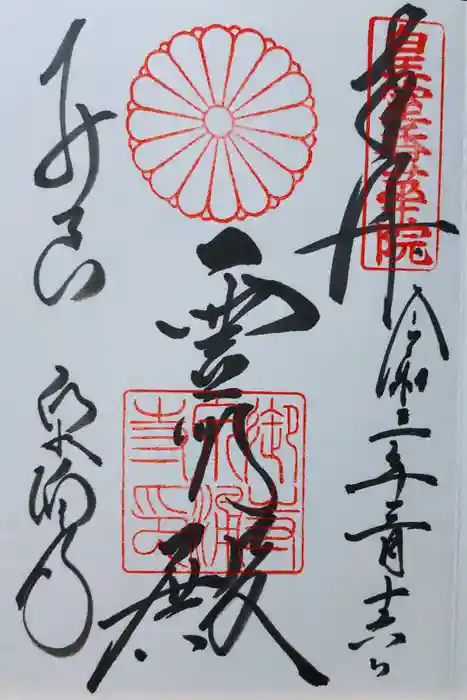 皇室香華院
奉拝
令和三年二月十六日
霊明殿
御寺泉涌寺印
泉涌寺